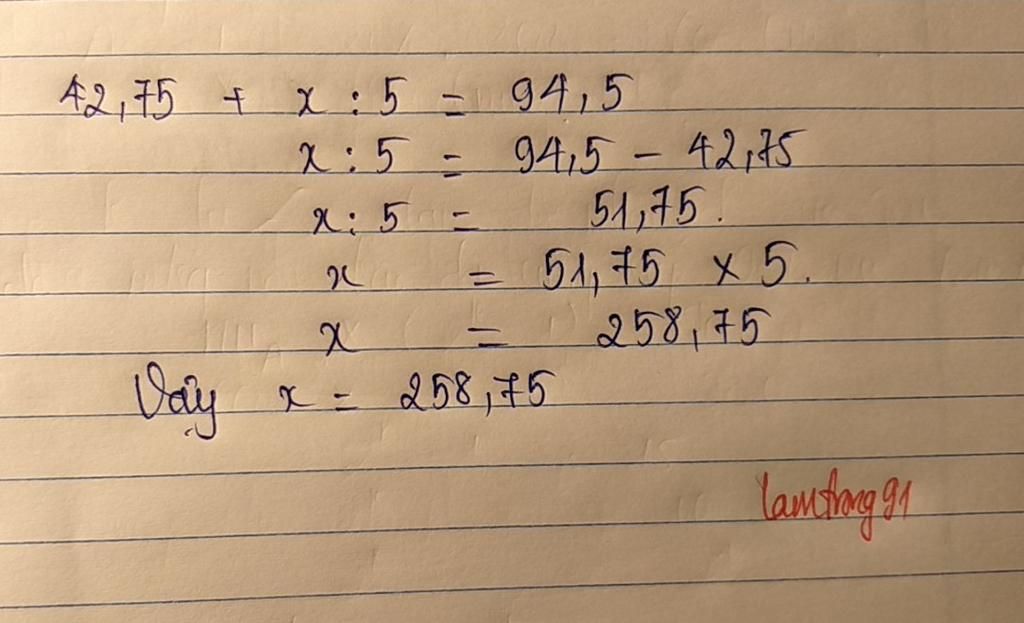 42,75 + x : 5 = 94,5
x : 5 = 94,5 - 42,75
x : 5 = 51,75.
x = 51,75 x 5.
x = 258,75
Vậy x = 258,75
lamtrang91